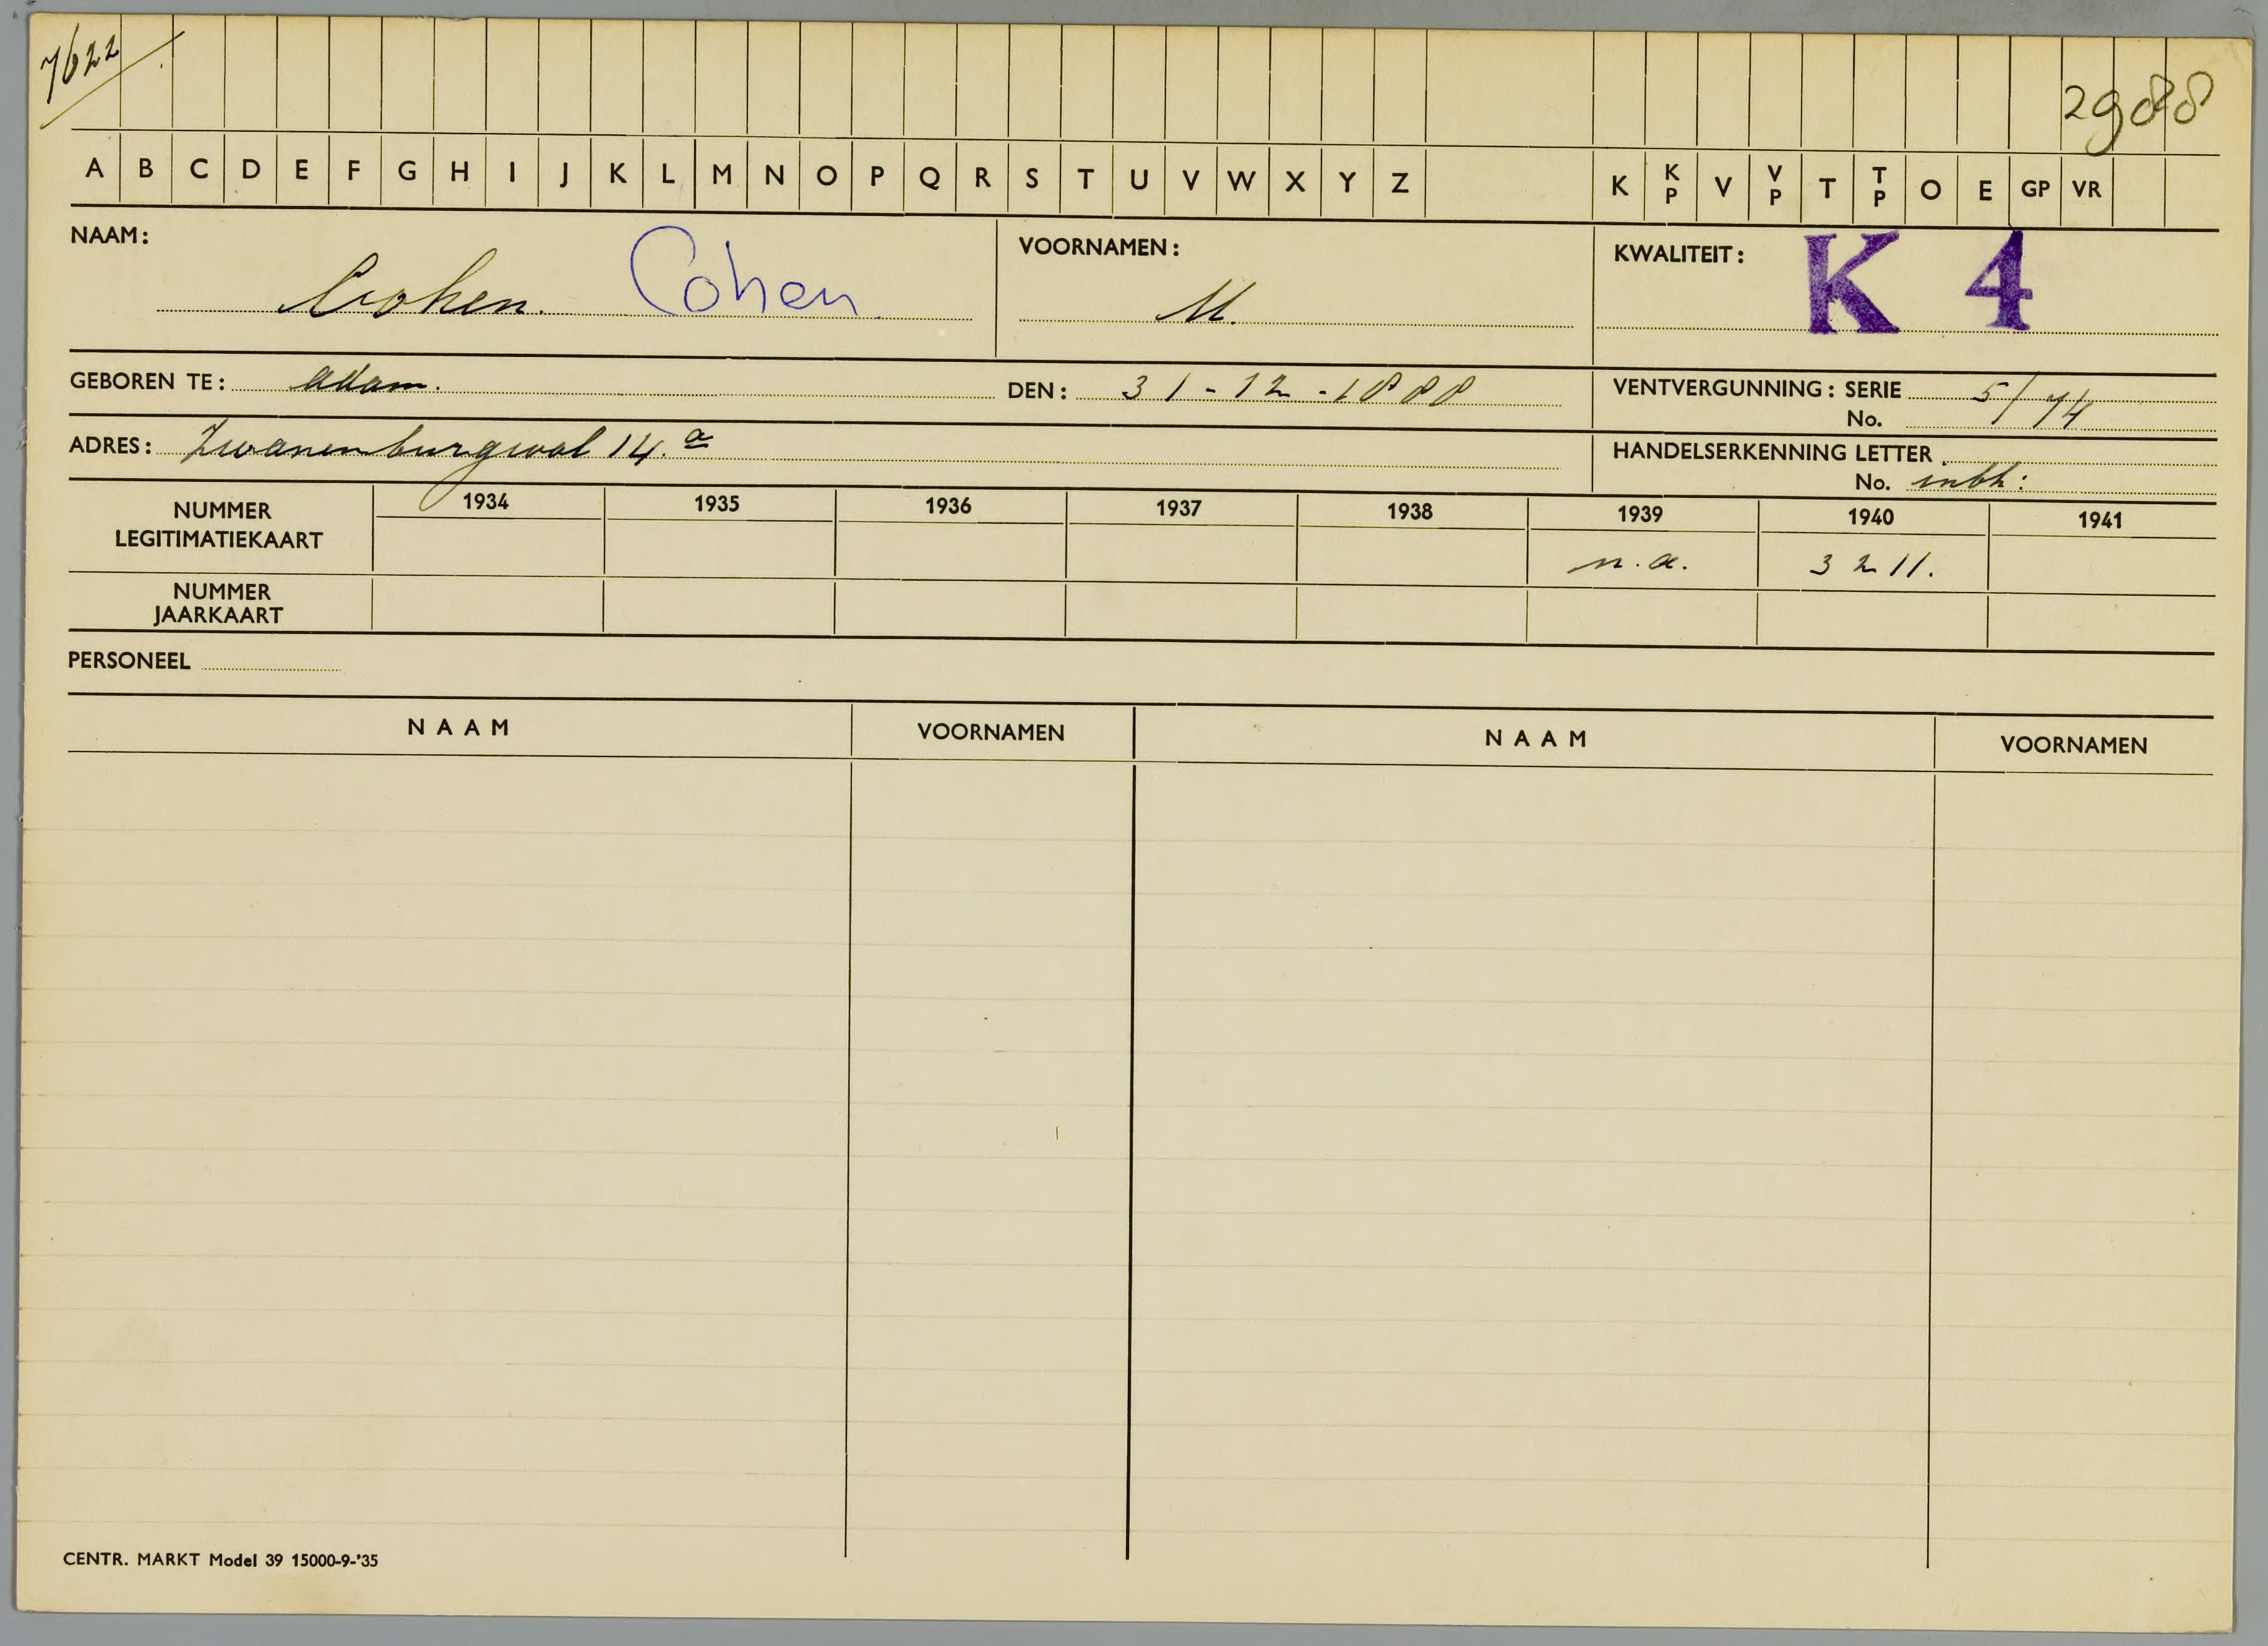 7622
2988
A B C D E F G H I J K L M N O P Q R S T U V W X Y Z K KP V VP T TP O E GP VR
NAAM: Cohen. Cohen
VOORNAMEN: M.
KWALITEIT: K 4
GEBOREN TE: Adam. DEN: 31-12-1888
VENTVERGUNNING: SERIE 5/74
No.
ADRES: Zwanenburgwal 14.a
HANDELSERKENNING LETTER
No. inbh:
NUMMER LEGITIMATIEKAART 1934 1935 1936 1937 1938 1939 1940 1941
n.a. 3211.
NUMMER JAARKAART
PERSONEEL
NAAM VOORNAMEN NAAM VOORNAMEN
CENTR. MARKT Model 39 15000-9-'35